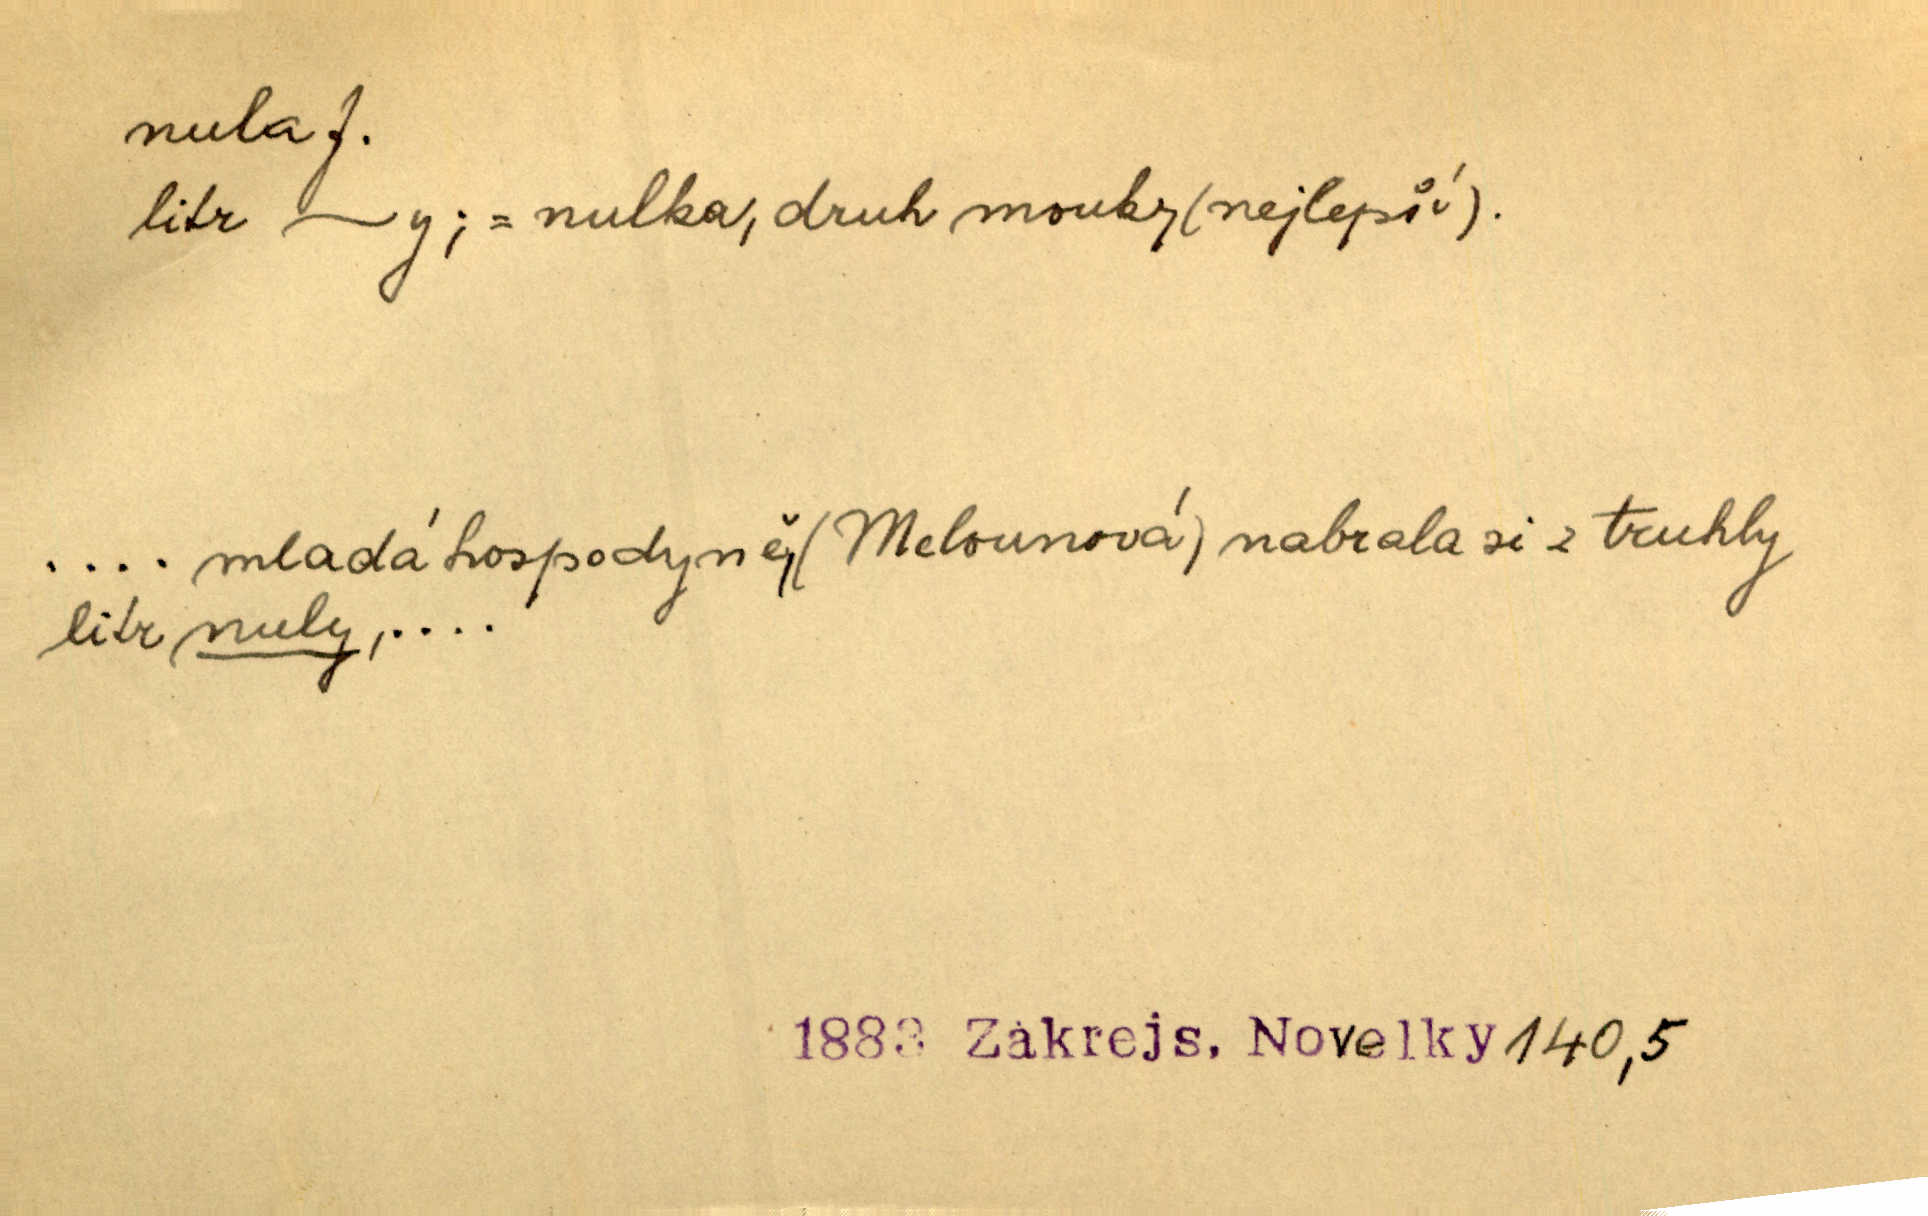 nula f.
litr ~y; = nulka, druh mouky (nejlepší).
.... mladá hospodyně (Melounová) nabrala si z truhly
litr nuly, ....
1883 Zákrejs. Novelky 140,5